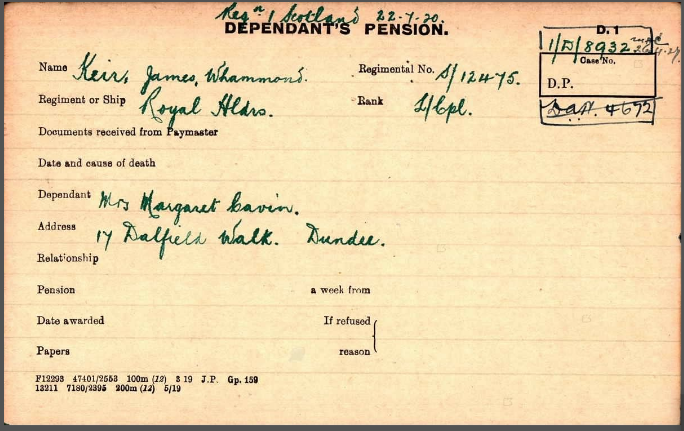 Regn 1 Scotland 22-7-20.
DEPENDANT'S PENSION.
D. 1
1/D/8932
Name Keir, James, Whammond.
Regimental No. S/12475.
Case No.
D.P.
Regiment or Ship Royal Hdrs.
Rank L/Cpl.
D.A.H. 4672
Documents received from Paymaster
Date and cause of death
Dependant Mrs Margaret Cavin.
Address 17 Dalfield Walk. Dundee.
Relationship
Pension a week from
Date awarded If refused
Papers reason
F12293 47401/2553 100m (12) 3 19 J.P. Gp. 159
13211 7180/2395 200m (12) 5/19